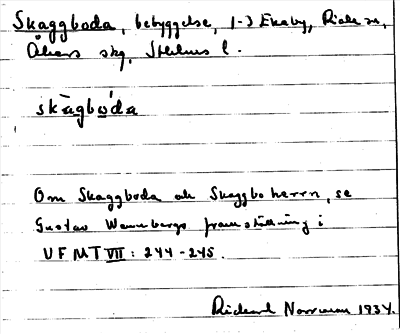 Skaggboda, bebyggelse, 1-3 Ekeby, Ekeby sn,
Åkers skg, Sthlms l.
skàgbo̲da
Om Skaggboda och Skaggboherrn, se
Gustav Wennbergs framställning i
UFMT VII: 244-245.
Rickard Norrman 1934.